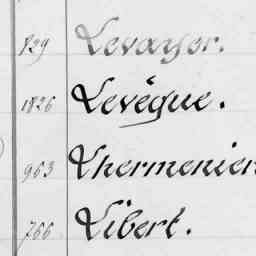 829 Levayer.
1826 Levêque.
963 Lhermenier
766 Libert.